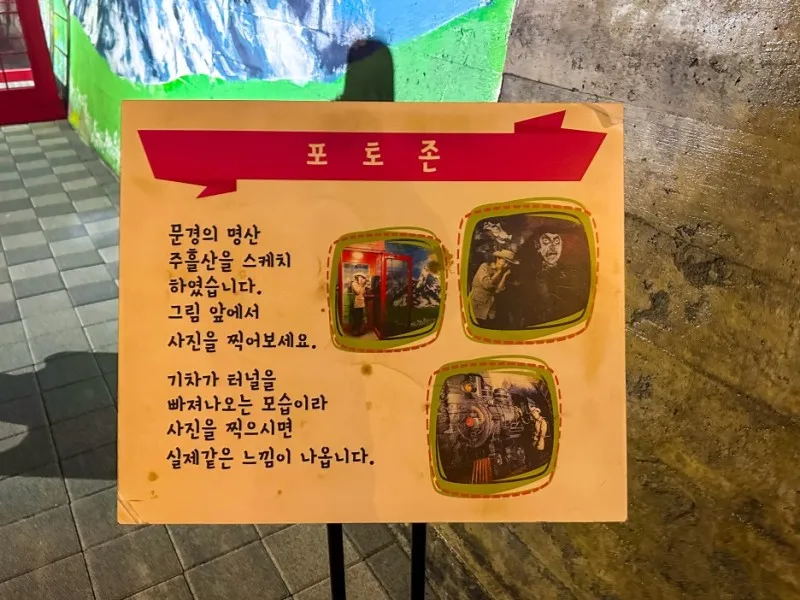 포토존
문경의 명산
주흘산을 스케치
하였습니다.
그림 앞에서
사진을 찍어보세요.
기차가 터널을
빠져나오는 모습이라
사진을 찍으시면
실제같은 느낌이 나옵니다.